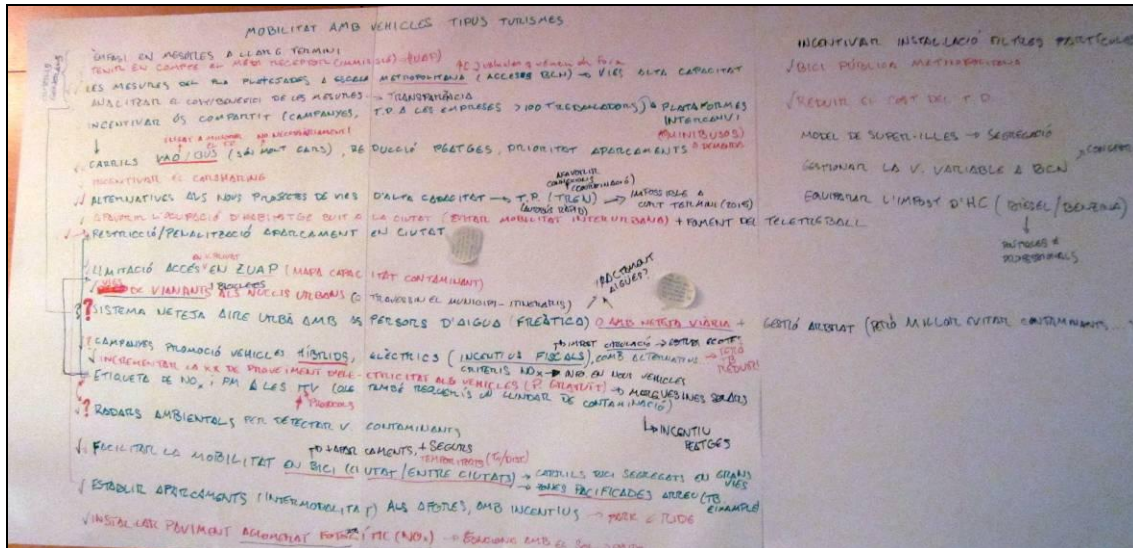 MOBILITAT AMB VEHICLES TIPUS TURISMES
ÈMFASI EN MESURES A LLARG TERMINI
TENIR EN COMPTE AL MEDI RECEPTOR (IMMISSIÓ)
LES MESURES DEL PLA PLATEJADES A ESCALA METROPOLITANA (ACCESOS BCN) → VIES ALTA CAPACITAT
ANALITZAR EL COST/BENEFICI DE LES MESURES → TRANSPARÈNCIA
INCENTIVAR ÚS COMPARTIT (CAMPANYES, T.P. A LES EMPRESES >100 TREBALLADORS) → PLATAFORMES INTERCANVI
(MINIBUSOS)
A DEMANDA
NO NECESSÀRIAMENT
↓ CARRILS VAO/BUS (SÓN MOLT CARS), REDUCCIÓ PEATGES, PRIORITAT APARCAMENTS
INCENTIVAR EL CARSHARING
AFAVORIR CONNEXIONS (COORDINACIÓ)
ALTERNATIVES ALS NOUS PROJECTES DE VIES D'ALTA CAPACITAT → T.P. (TREN) → IMPOSSIBLE A CURT TERMINI (2015)
AFAVORIR L'OCUPACIÓ D'HABITATGE BUIT A LA CIUTAT (EVITAR MOBILITAT INTERURBANA) + FOMENT DEL TELETREBALL
RESTRICCIÓ/PENALITZACIÓ APARCAMENT EN CIUTAT
LIMITACIÓ ACCÉS EN ZUAP (MAPA CAPACITAT CONTAMINANT)
VIES DE VIANANTS I BICICLETES ALS NUCLIS URBANS (O TRAVESSIN EL MUNICIPI - ITINERARIS)
TRACTEMENT AIGÜES?
? SISTEMA NETEJA AIRE URBÀ AMB ASPERSORS D'AIGUA (FREÀTICA) O AMB NETEJA VIÀRIA + GESTIÓ ARBRAT (PERÒ MILLOR EVITAR CONTAMINANTS,...)
CAMPANYES PROMOCIÓ VEHICLES HÍBRIDS, ELÈCTRICS (INCENTIUS FISCALS), COMB. ALTERNATIUS
CRITERIS NOx → NO2 EN NOUS VEHICLES
INCREMENTAR LA XX DE PROVEIMENT D'ELECTRICITAT ALS VEHICLES (P. GRATUÏT) → MERQUESINES SOLARS
ETIQUETA DE NOx I PM A LES ITV (QUE TAMBÉ REQUERÍS UN LLINDAR DE CONTAMINACIÓ)
↳ INCENTIU PEATGES
? RADARS AMBIENTALS PER DETECTAR V. CONTAMINANTS
+ APARCAMENTS, + SEGURS
FACILITAR LA MOBILITAT EN BICI (CIUTAT/ENTRE CIUTATS) → CARRILS BICI SEGREGATS EN GRANS VIES
→ ZONES PACIFICADES ARREU (TB EIXAMPLE)
ESTABLIR APARCAMENTS (INTERMODALITAT) ALS AFORES, AMB INCENTIUS → PARK & RIDE
INSTAL·LAR PAVIMENT AGLOMERAT (NOx) → FUNCIONA AMB EL SOL
INCENTIVAR INSTAL·LACIÓ FILTRES PARTÍCULES
BICI PÚBLICA METROPOLITANA
REDUIR EL COST DEL T.P.
MODEL DE SUPER-ILLES → SEGREGACIÓ
GESTIONAR LA V. VARIABLE A BCN
EQUIPARAR L'IMPOST D'HC (DIÈSEL/BENZINA)
PROFESSIONALS